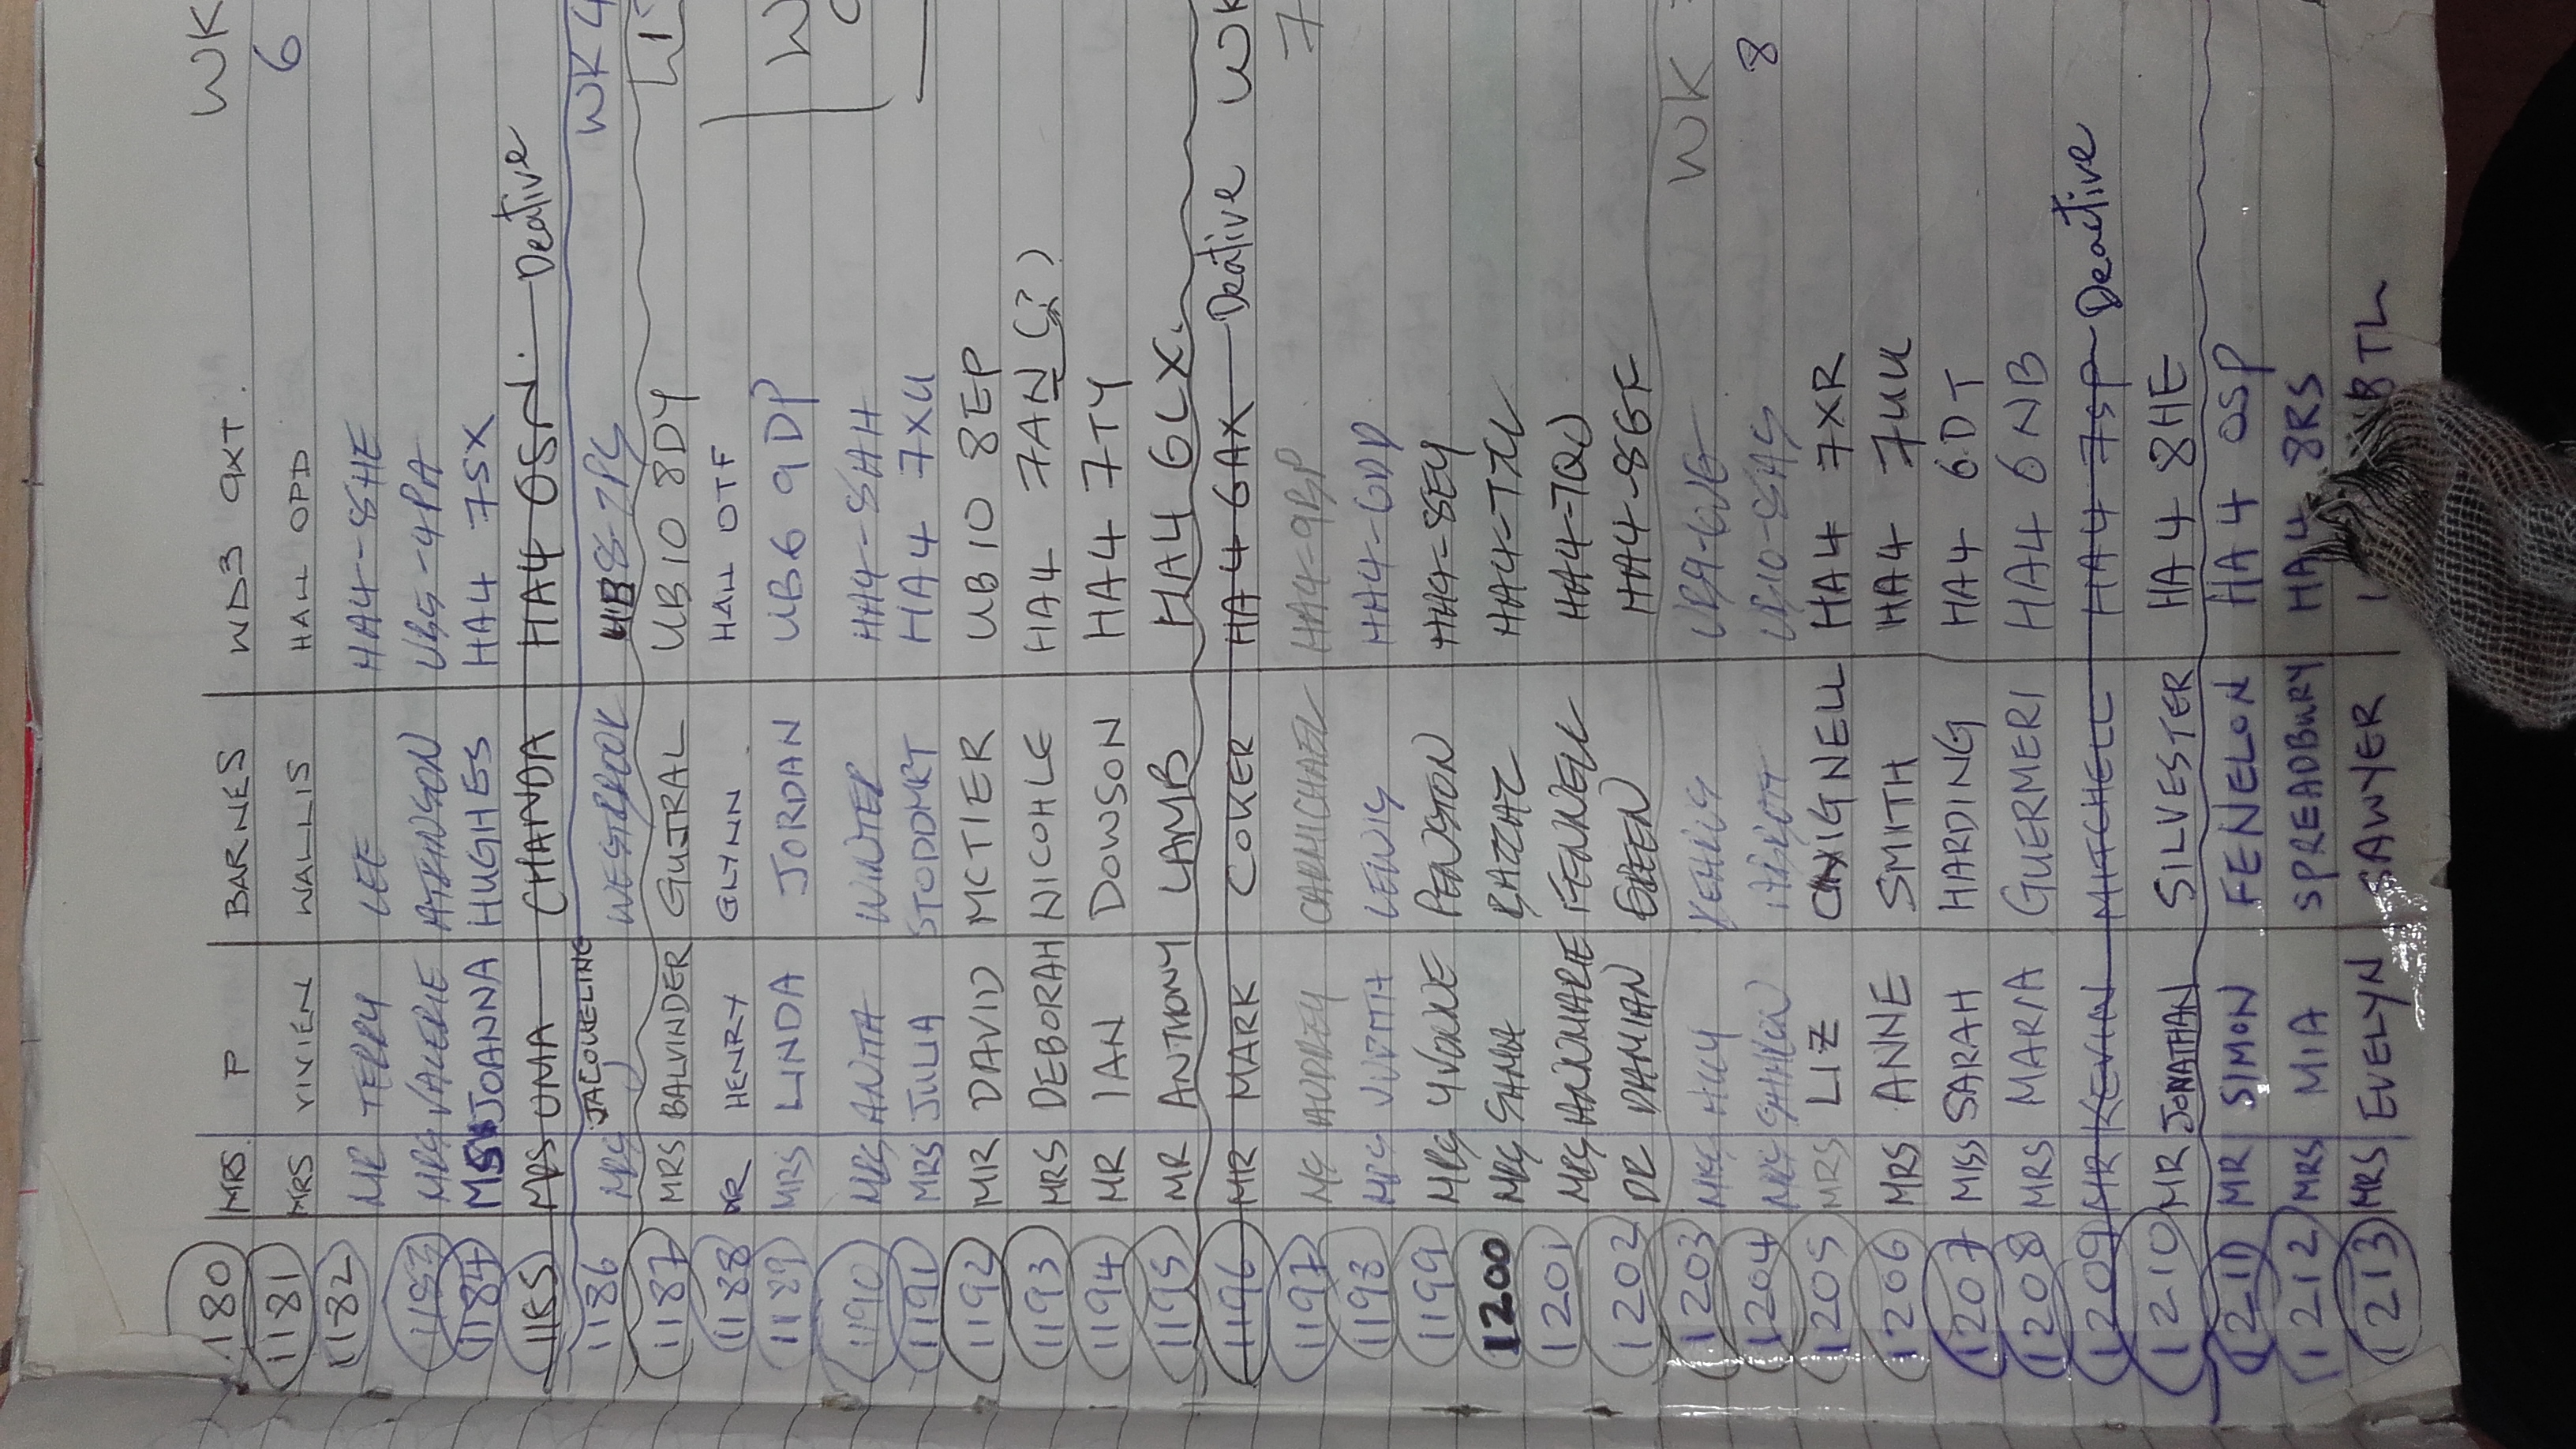 1180 MRS. P BARNES WD3 9XT. WK
1181 MRS VIVIEN WALLIS HA4 0PD 6
1182 MR TERRY LEE HA4-8HE
1183 MRS VALERIE ATKINSON UB5-4PA
1184 MS JOANNA HUGHES HA4 7SX
1185 MRS UMA CHANDA HA4 0SN. Deative
1186 MRS JACQUELING J WESTBROOK UB8-7PS WK 4
1187 MRS BALVINDER GUJRAL UB10 8DY
1188 MR HENRY GLYNN HA4 0TF
1189 MRS LINDA JORDAN UB6 9DP W
1190 MRS ANITA WINTER HA4-8AH
1191 MRS JULIA STODDART HA4 7XU
1192 MR DAVID MCTIER UB10 8EP
1193 MRS DEBORAH NICOHLE HA4 7AN (?)
1194 MR IAN DOWSON HA4 7TY
1195 MR ANTHONY LAMB HA4 6LX.
1196 MR MARK COKER HA4 6AX Deative WK
1197 MS AUDREY CARMICHAEL HA4-9BP 7
1198 MRS JUDITH LEWIS HA4-6DD
1199 MRS YVONNE PENSTON HA4-8EY
1200 MRS SAMA
1201 MRS ANNMARIE FENNELL HA4-7QJ
1202 DR DAMIAN GREEN HA4-8GF
1203 WK
1204 MRS SHARON ABBOTT UB10-8AS 8
1205 MRS LIZ HA4 7XR
1206 MRS ANNE SMITH HA4 7UU
1207 MISS SARAH HARDING HA4 6DT
1208 MRS MARIA GUERMERI HA4 6NB
1209 MR KEVIN MITCHELL HA4 7SP Deactive
1210 MR JONATHAN SILVESTER HA4 8HE
1211 MR SIMON FENELON HA4 0SP
1212 MRS MIA SPREADBURY HA4 8RS
1213 MRS EVELYN SAWYER